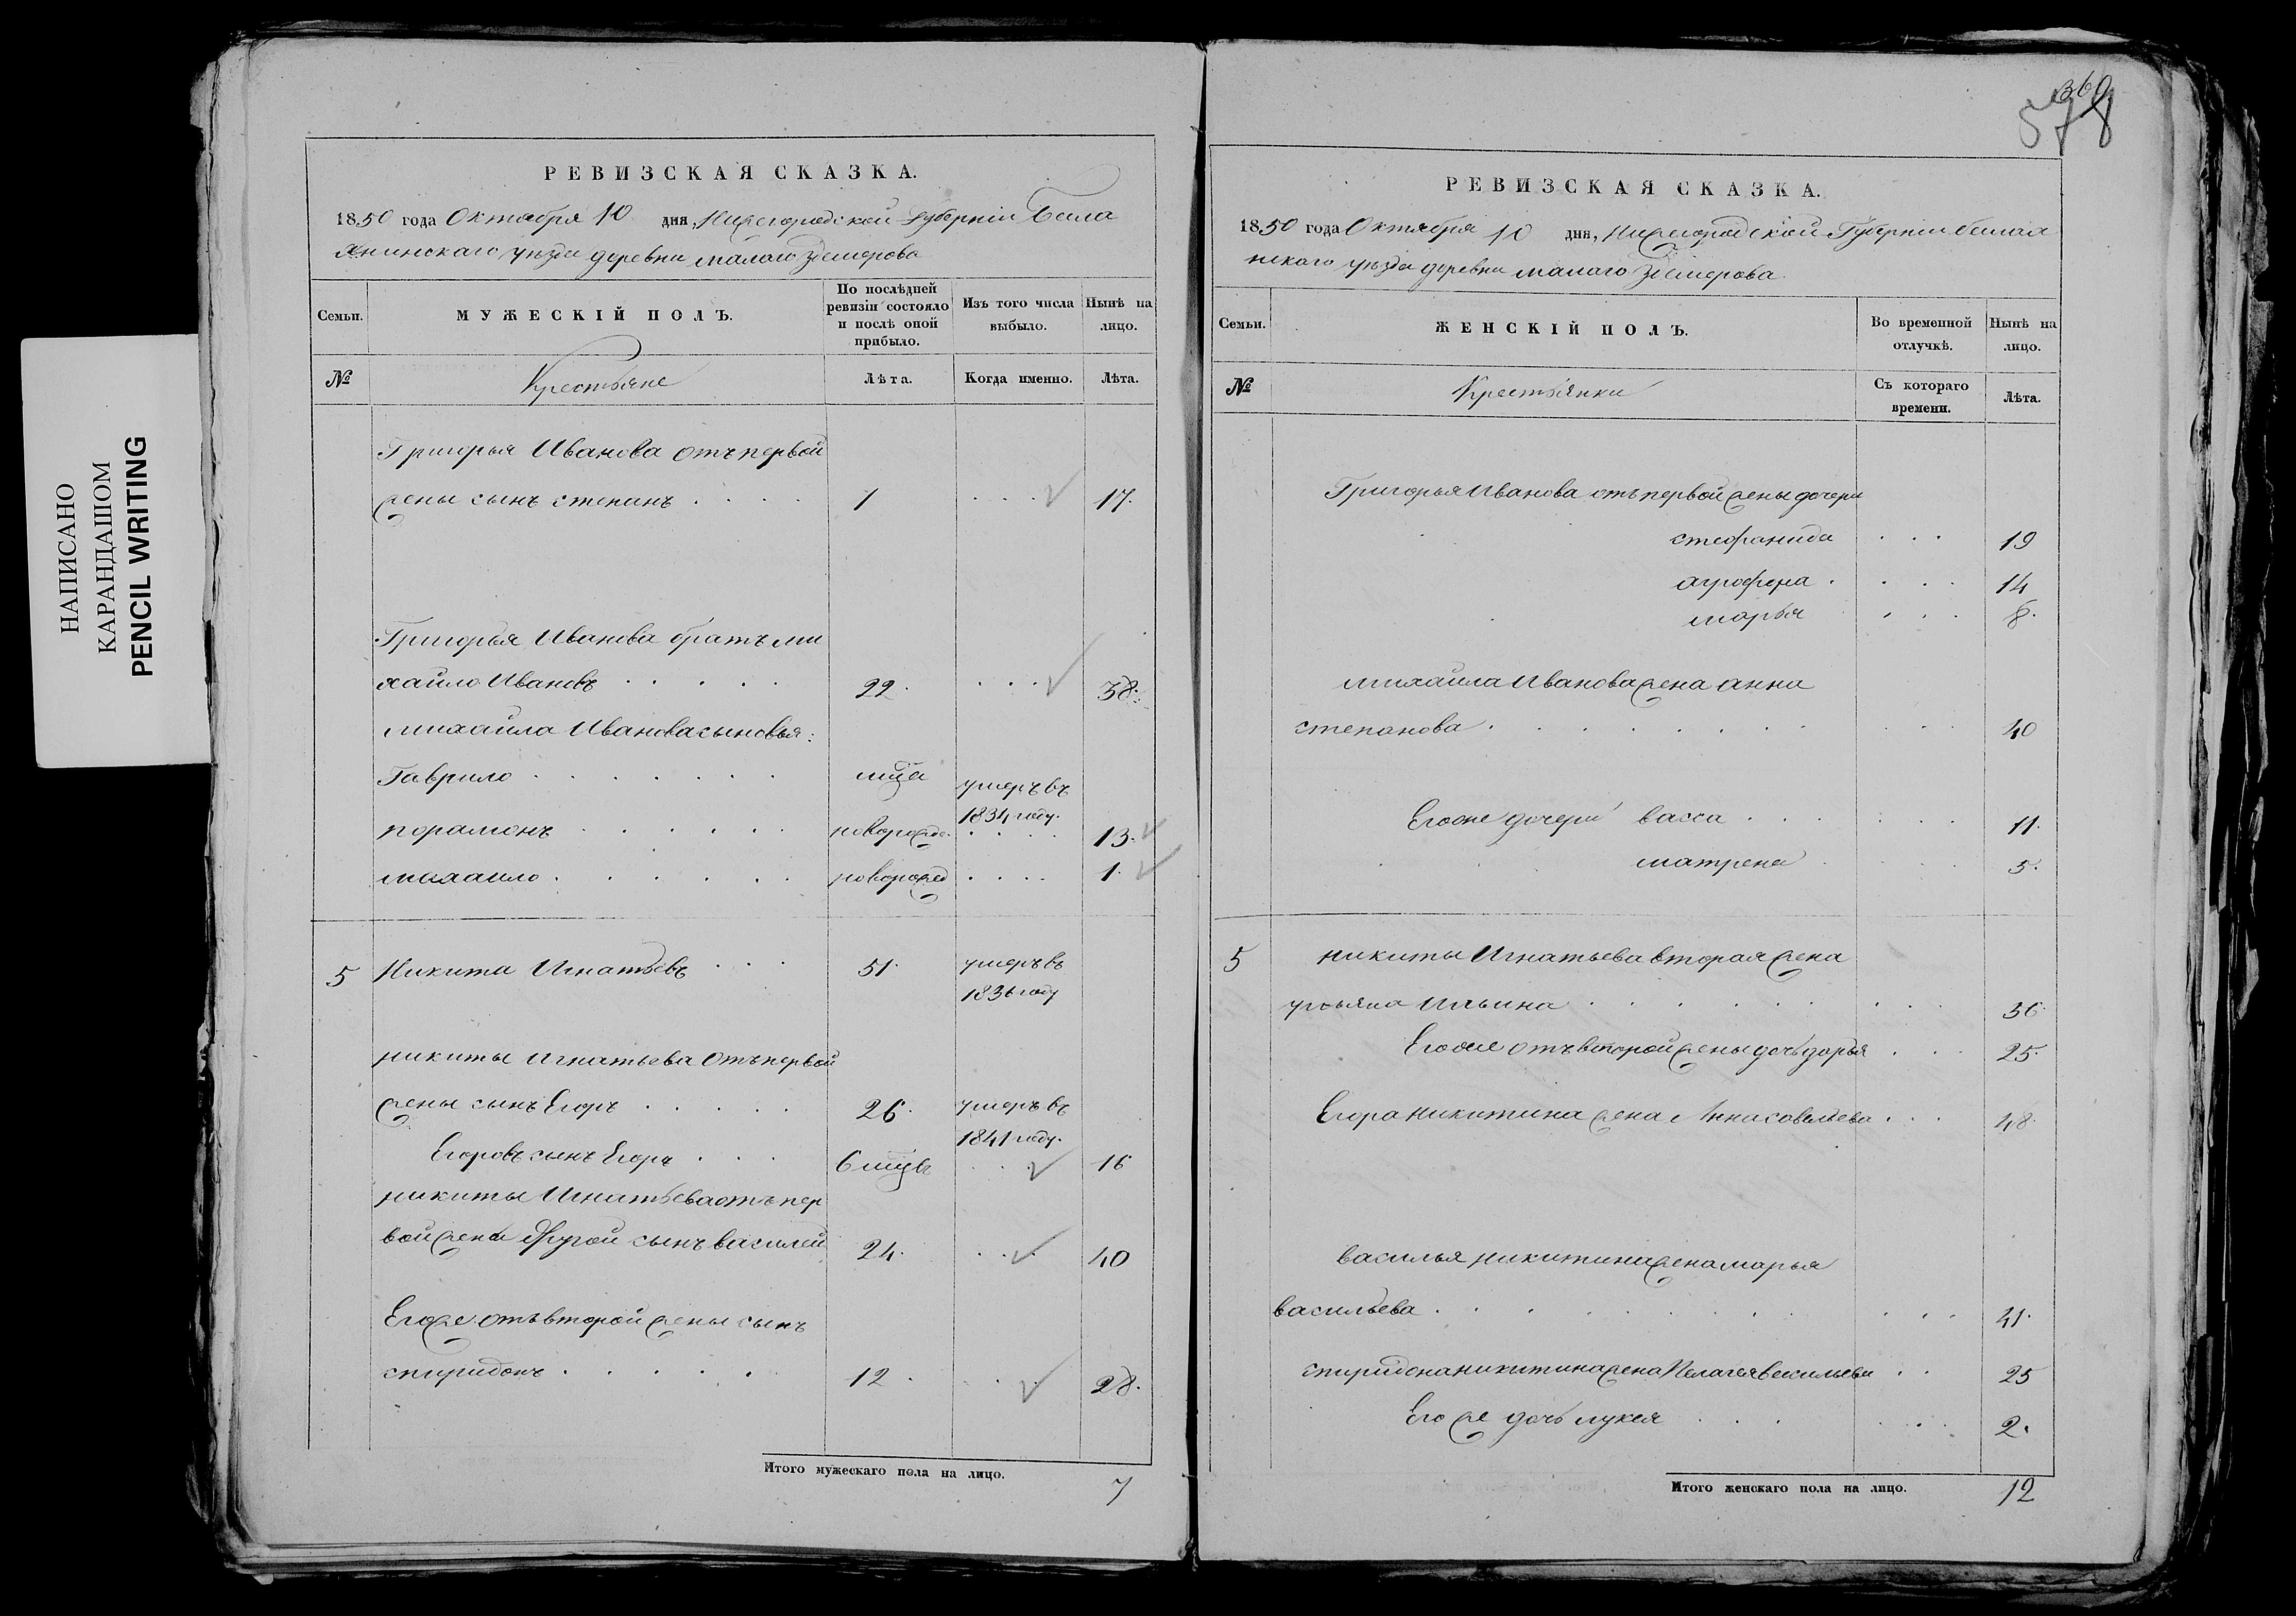 НАПИСАНО
КАРАНДАШОМ
PENCIL WRITING
РЕВИЗСКАЯ СКАЗКА.
1850 года Октября 10 дня, Нижегородской Губерніи Бала
хнинскаго уѣзда деревни малаго
Семьи.
МУЖЕСКІЙ ПОЛЪ.
По послѣдней ревизіи состояло и послѣ оной прибыло.
Изъ того числа выбыло.
Нынѣ на лицо.
№
Крестьяне
Лѣта.
Когда именно.
Лѣта.
Григорья Иванова отъ первой
жены сынъ степанъ . . . . 1 . . . 17.
Григорья Иванова братъ ми
хайло Ивановъ . . . . . 22. . . . 38.
михайла Иванова сыновья:
Гаврило . . . . . . . мца умеръ въ
1834 году.
порамонъ . . . . . . новорожде. . . . . 13.
михаило . . . . . . новорожд . . . . 1.
5 Никита Игнатьевъ . . . 51. умеръ въ
1836 году
никиты Игнатьева отъ первой
жены сынъ Егоръ . . . . . 26. умеръ въ
1841 году.
Егоровъ сынъ Егоръ . . . 6 мцвъ . . . 16
никиты Игнатьева отъ пер
вой жены другой сынъ василей 24. . . . 40
Егоже отъ второй жены сынъ
спиридонъ . . . . . 12 . . . 28.
Итого мужескаго пола на лицо. 7
360
578
РЕВИЗСКАЯ СКАЗКА.
1850 года Октября 10 дня, Нижегородской Губерніи балах
нскаго уѣзда деревни малаго
Семьи.
ЖЕНСКІЙ ПОЛЪ.
Во временной отлучкѣ.
Нынѣ на лицо.
№
Крестьянки
Съ котораго времени.
Лѣта.
Григорья Иванова отъ первой жены дочери
стефанида . . . 19
агрофена . . . . 14
марья . . . 8.
михаила Иванова жена анна
степанова . . . . . . . . . 40
Егоже дочери васса . . . . . . 11.
матрена . . . 5.
5 никиты Игнатьева вторая жена
ульяна Ильина . . . . . . . . 36.
Егоже отъ второй жены дочь дарья . . . 25.
Егора никитина жена Анна савельева . . . 48.
василья никитина жена марья
васильева . . . . . . . . . . 41.
спиридона никитина жена Пелагея васильева . . 25
Его же дочь лукея . . . . . . 2.
Итого женскаго пола на лицо. 12